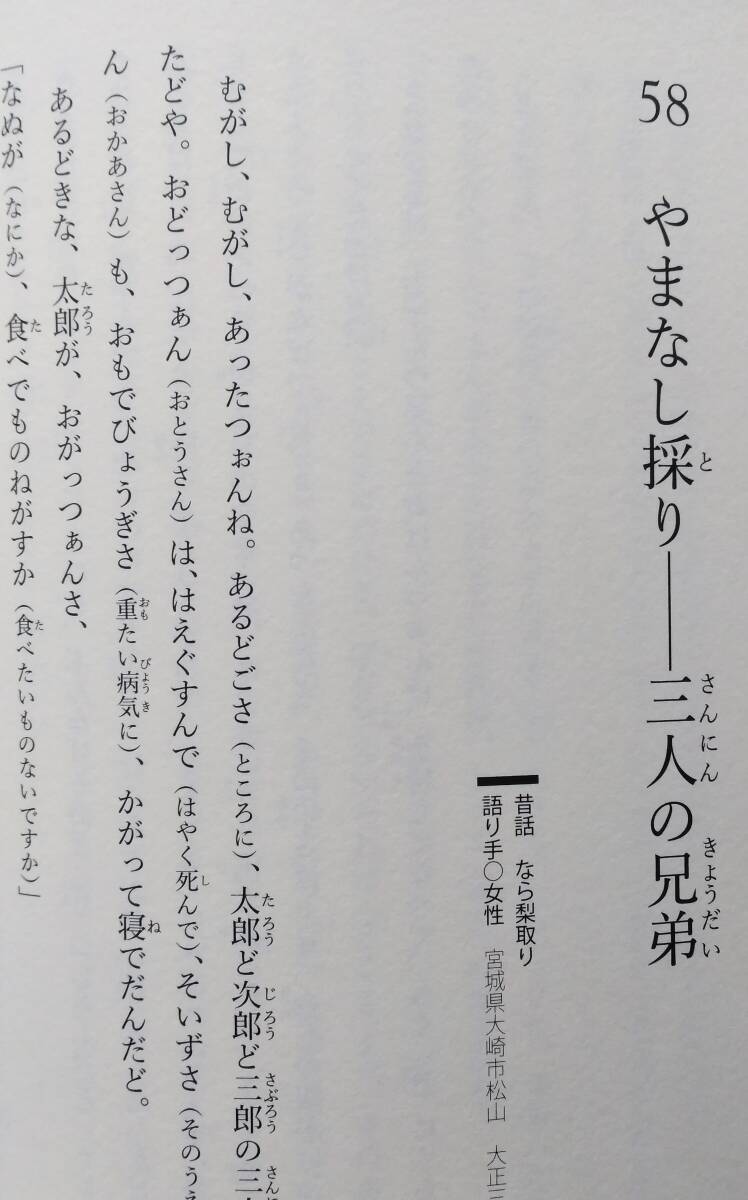 58　やまなし採り――三人の兄弟
昔話　なら梨取り
語り手○女性　宮城県大崎市松山　大正三
むがし、むがし、あったつぉんね。あるどごさ（ところに）、太郎ど次郎ど三郎の三
たどや。おどっつぁん（おとうさん）は、はえぐすんで（はやく死んで）、そいずさ（そのうえ
ん（おかあさん）も、おもでびょうぎさ（重たい病気に）、かがって寝でだんだど。
あるどきな、太郎が、おがっつぁんさ、
「なぬが（なにか）、食べでものねがすか（食べたいものないですか）」